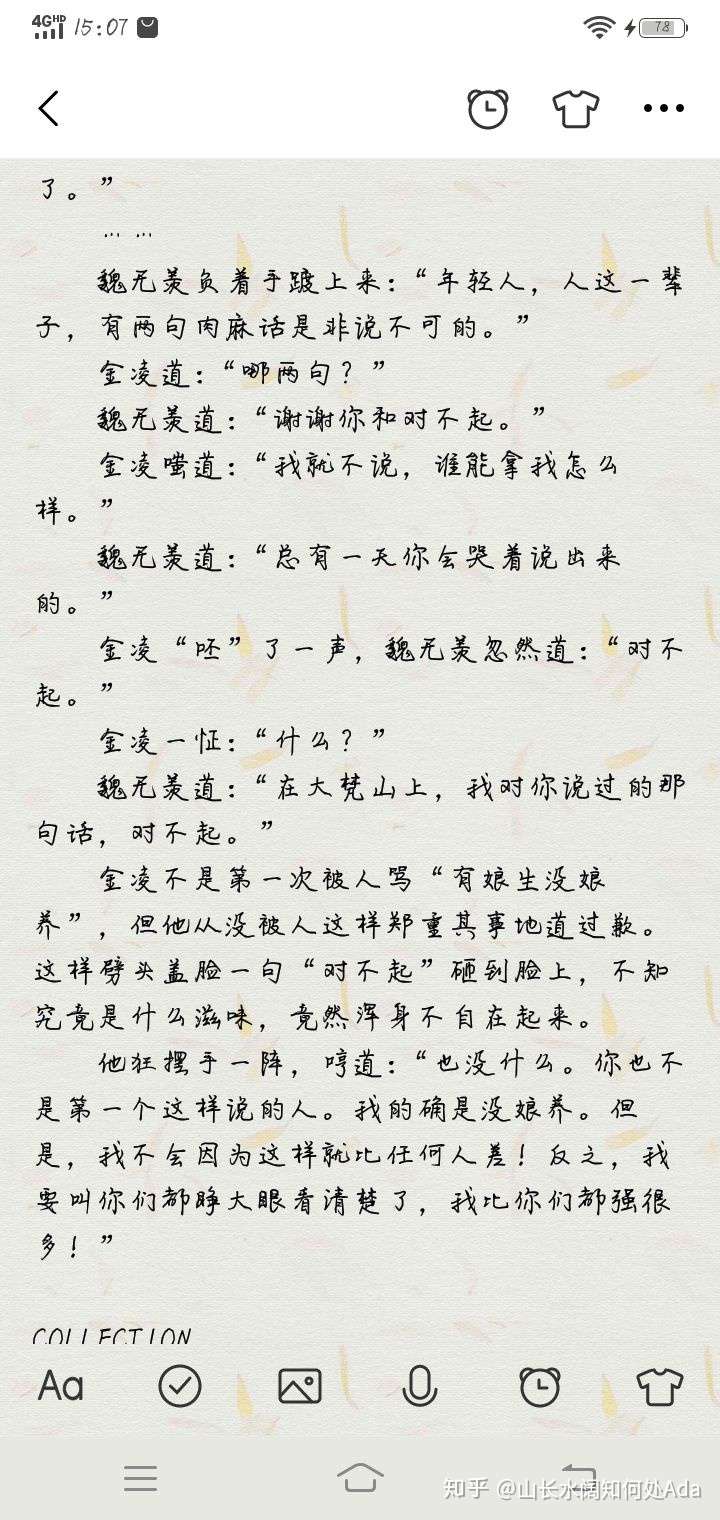 4G HD 15:07 78
了。”
... ...
魏无羡负着手踱上来：“年轻人，人这一辈
子，有两句肉麻话是非说不可的。”
金凌道：“哪两句？”
魏无羡道：“谢谢你和对不起。”
金凌嗤道：“我就不说，谁能拿我怎么
样。”
魏无羡道：“总有一天你会哭着说出来
的。”
金凌“呸”了一声，魏无羡忽然道：“对不
起。”
金凌一怔：“什么？”
魏无羡道：“在大梵山上，我对你说过的那
句话，对不起。”
金凌不是第一次被人骂“有娘生没娘
养”，但他从没被人这样郑重其事地道过歉。
这样劈头盖脸一句“对不起”砸到脸上，不知
究竟是什么滋味，竟然浑身不自在起来。
他狂摆手一阵，哼道：“也没什么。你也不
是第一个这样说的人。我的确是没娘养。但
是，我不会因为这样就比任何人差！反之，我
要叫你们都睁大眼看清楚了，我比你们都强很
多！”
COLLECTION
Aa
知乎 @山长水阔知何处Ada